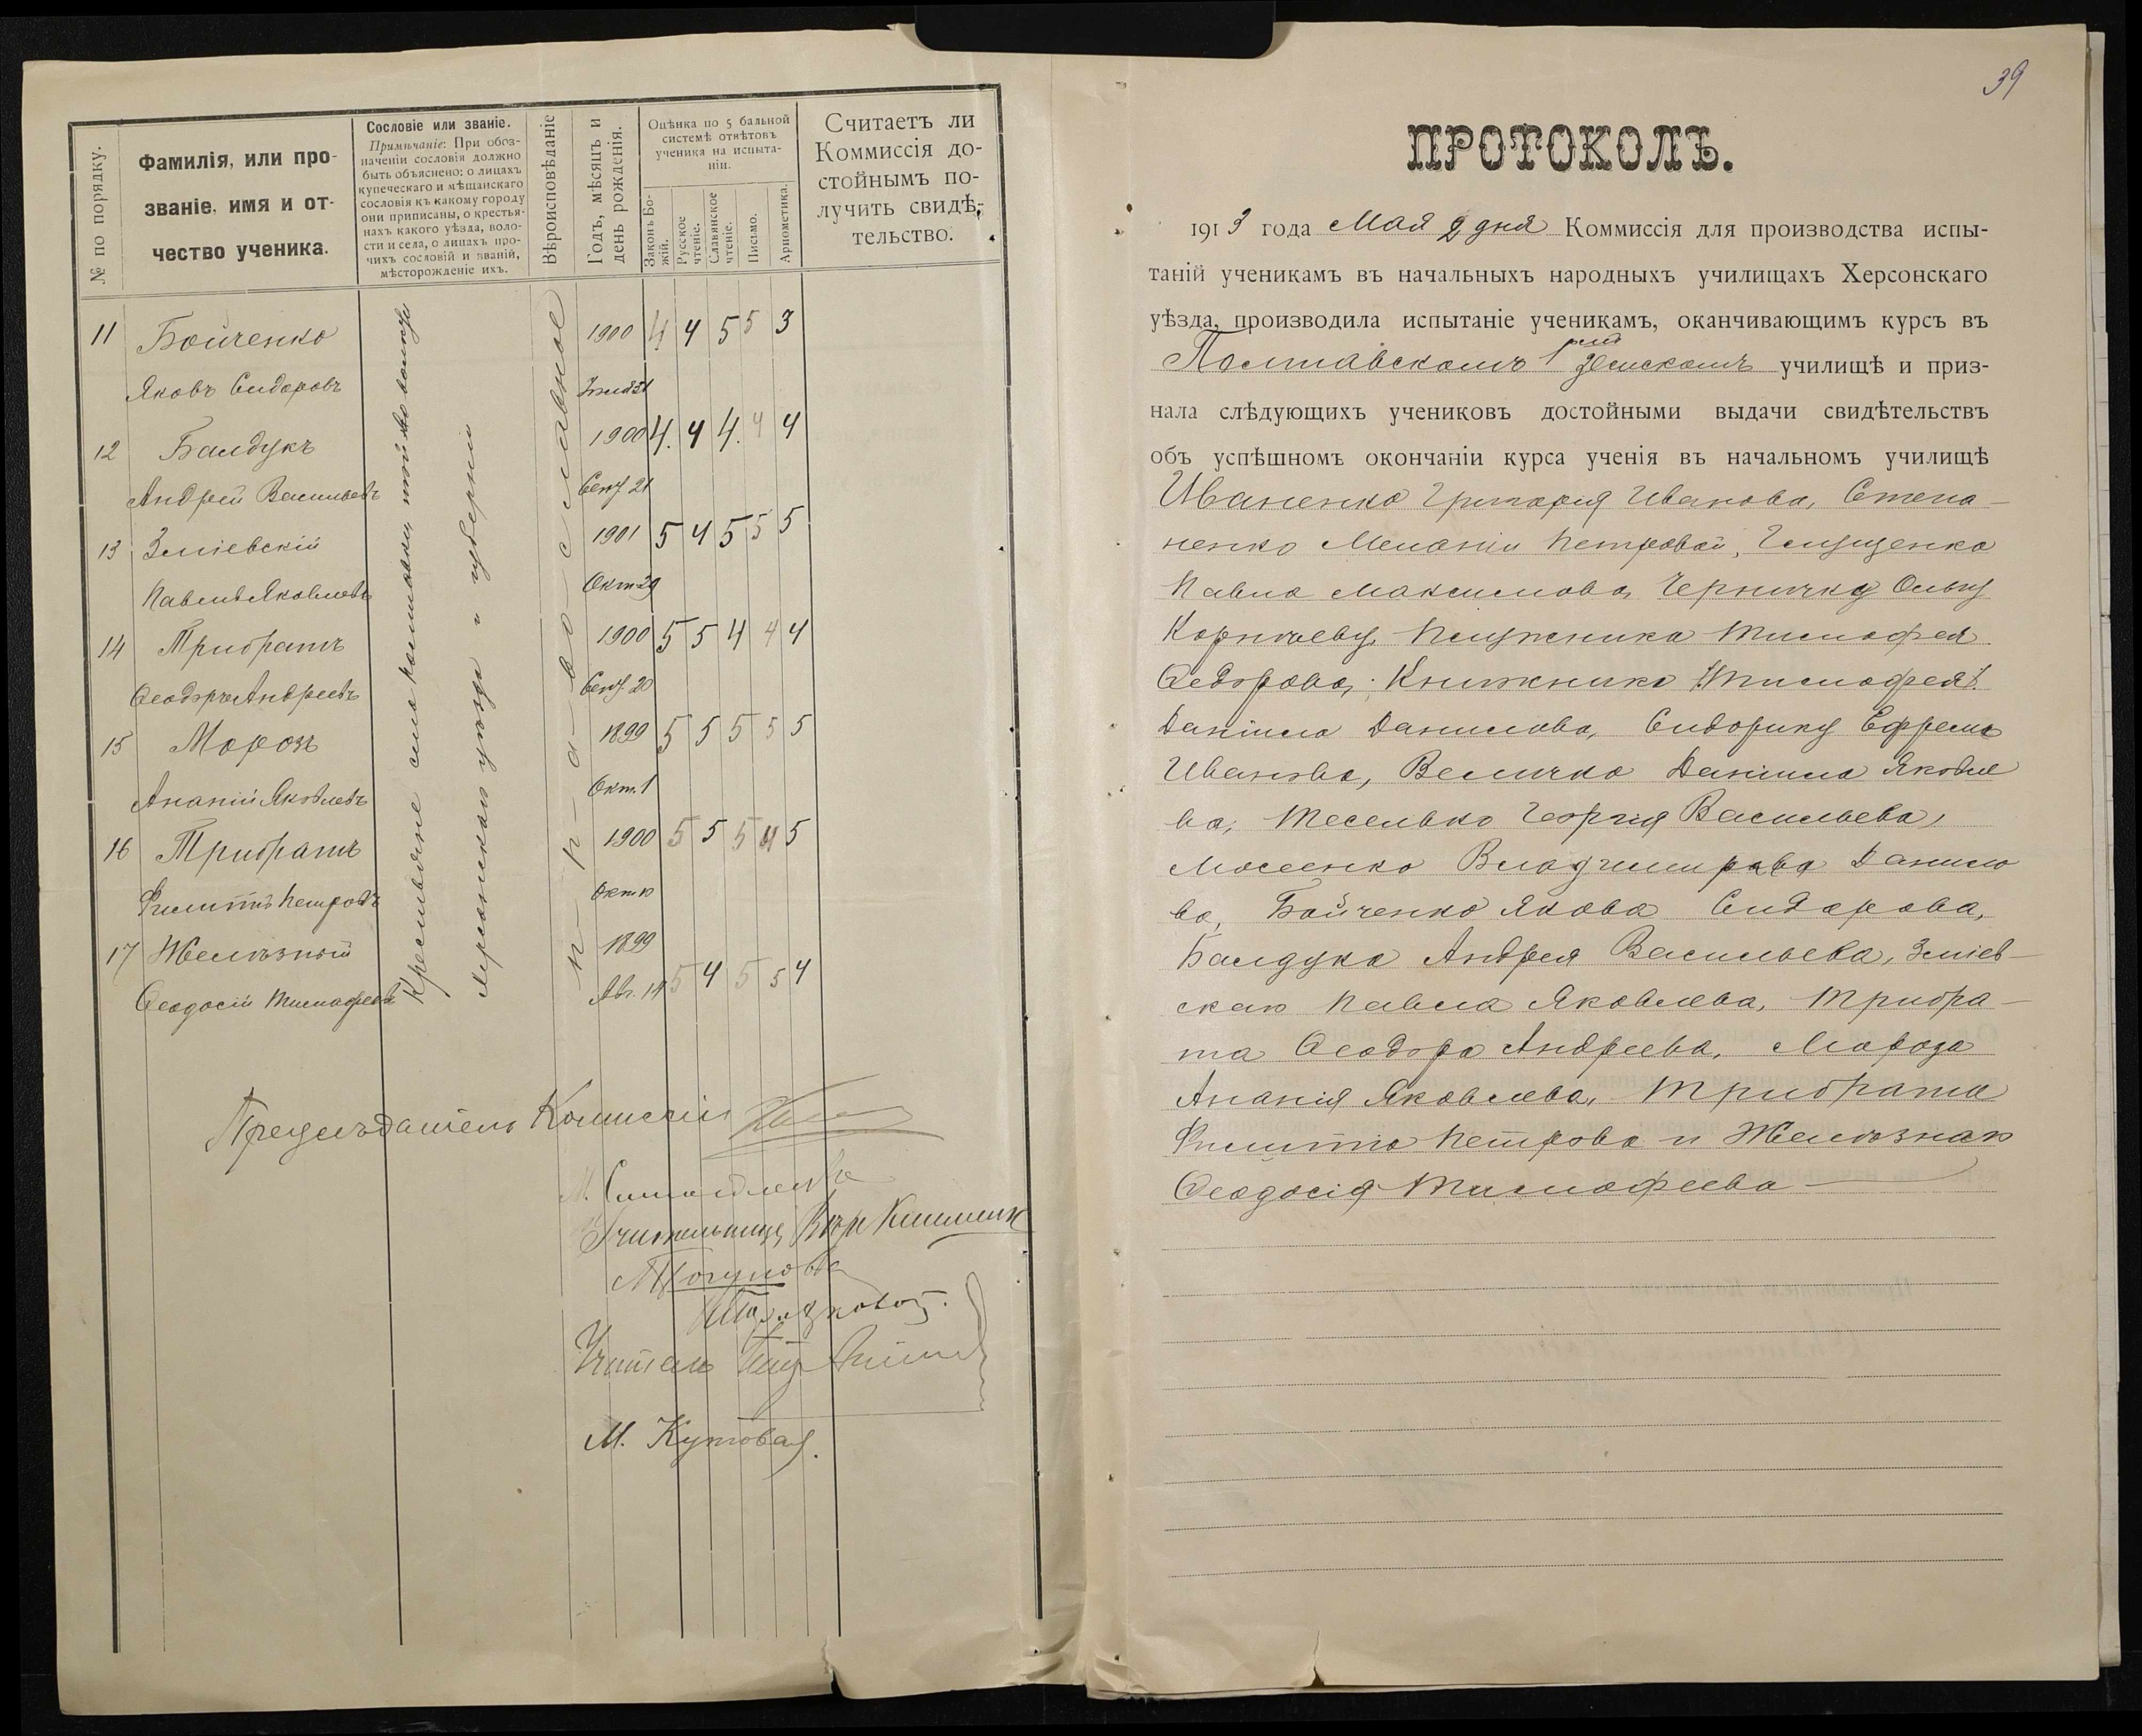 № по порядку.
Фамилія, или про-
званіе, имя и от-
чество ученика.
Сословіе или званіе.
Примѣчаніе: При обоз-
наченіи сословія должно
быть объяснено: о лицахъ
купеческаго и мѣщанскаго
сословія къ какому городу
они приписаны, о крестья-
нахъ какого уѣзда, воло-
сти и села, о лицахъ про-
чихъ сословій и званій,
мѣсторожденіе ихъ.
Вѣроисповѣданіе
Годъ, мѣсяцъ и
день рожденія.
Оцѣнка по 5 бальной
системѣ отвѣтовъ
ученика на испыта-
ніи.
Законъ Бо-
жій.
Русское
чтеніе.
Славянское
чтеніе.
Письмо.
Арифметика.
Считаетъ ли
Коммиссія до-
стойнымъ по-
лучить свидѣ-
тельство.
Крестьяне села
Херсонскаго уѣзда и губерніи
п-р-а-во-славное
11 Бойченко 1900 4 4 5 5 3
Яковъ Сидоровъ
12 Балдукъ 1900 4. 4 4. 4 4
Андрей Васильевъ Сент 21
13 Зміевскій 1901 5 4 5 5 5
Павелъ Яковлевъ Окт 29
14 Трибратъ 1900 5 5 4 4 4
Ѳеодоръ Андреевъ Сент 20
15 Морозъ 1899 5 5 5 5 5
Ананій Яковлевъ Окт. 1
16 Трибратъ 1900 5 5 5 4 5
Филиппъ Петровъ Окт 10
17 Желѣзный 1899
Ѳеодосій Тимофеевъ Авг. 14 5 4 5 5 4
Предсѣдатель Комиссіи
Учительница
Учитель
М. Кутовая.
39
ПРОТОКОЛЪ.
1913 года Мая 2 дня Коммиссія для производства испы-
таній ученикамъ въ начальныхъ народныхъ училищахъ Херсонскаго
уѣзда, производила испытаніе ученикамъ, оканчивающимъ курсъ въ
Полтавскомъ 1 земскомъ училищѣ и приз-
нала слѣдующихъ учениковъ достойными выдачи свидѣтельствъ
объ успѣшномъ окончаніи курса ученія въ начальномъ училищѣ
Иваненко Григорія Иванова, Степа-
ненко Меланіи Петровой, Глущенка
Павла Максимова, Черничку Ольгу
Корнѣеву, Плужника Тимофея
Ѳедорова, Книжника (Тимофея).
Даніила Данилова, Сидорику Ефрема
Иванова, Величко Даніила Яковле
ва, Теселько Георгія Васильева,
Мосеенко Владимира Данило
ва, Бойченко Якова Сидорова,
Балдука Андрея Васильева, Зміев-
скаго Павла Яковлева, Трибра-
та Ѳеодора Андреева, Мороза
Ананія Яковлева, Трибрата
Филиппа Петрова и Желѣзнаго
Ѳеодосія Тимофеева